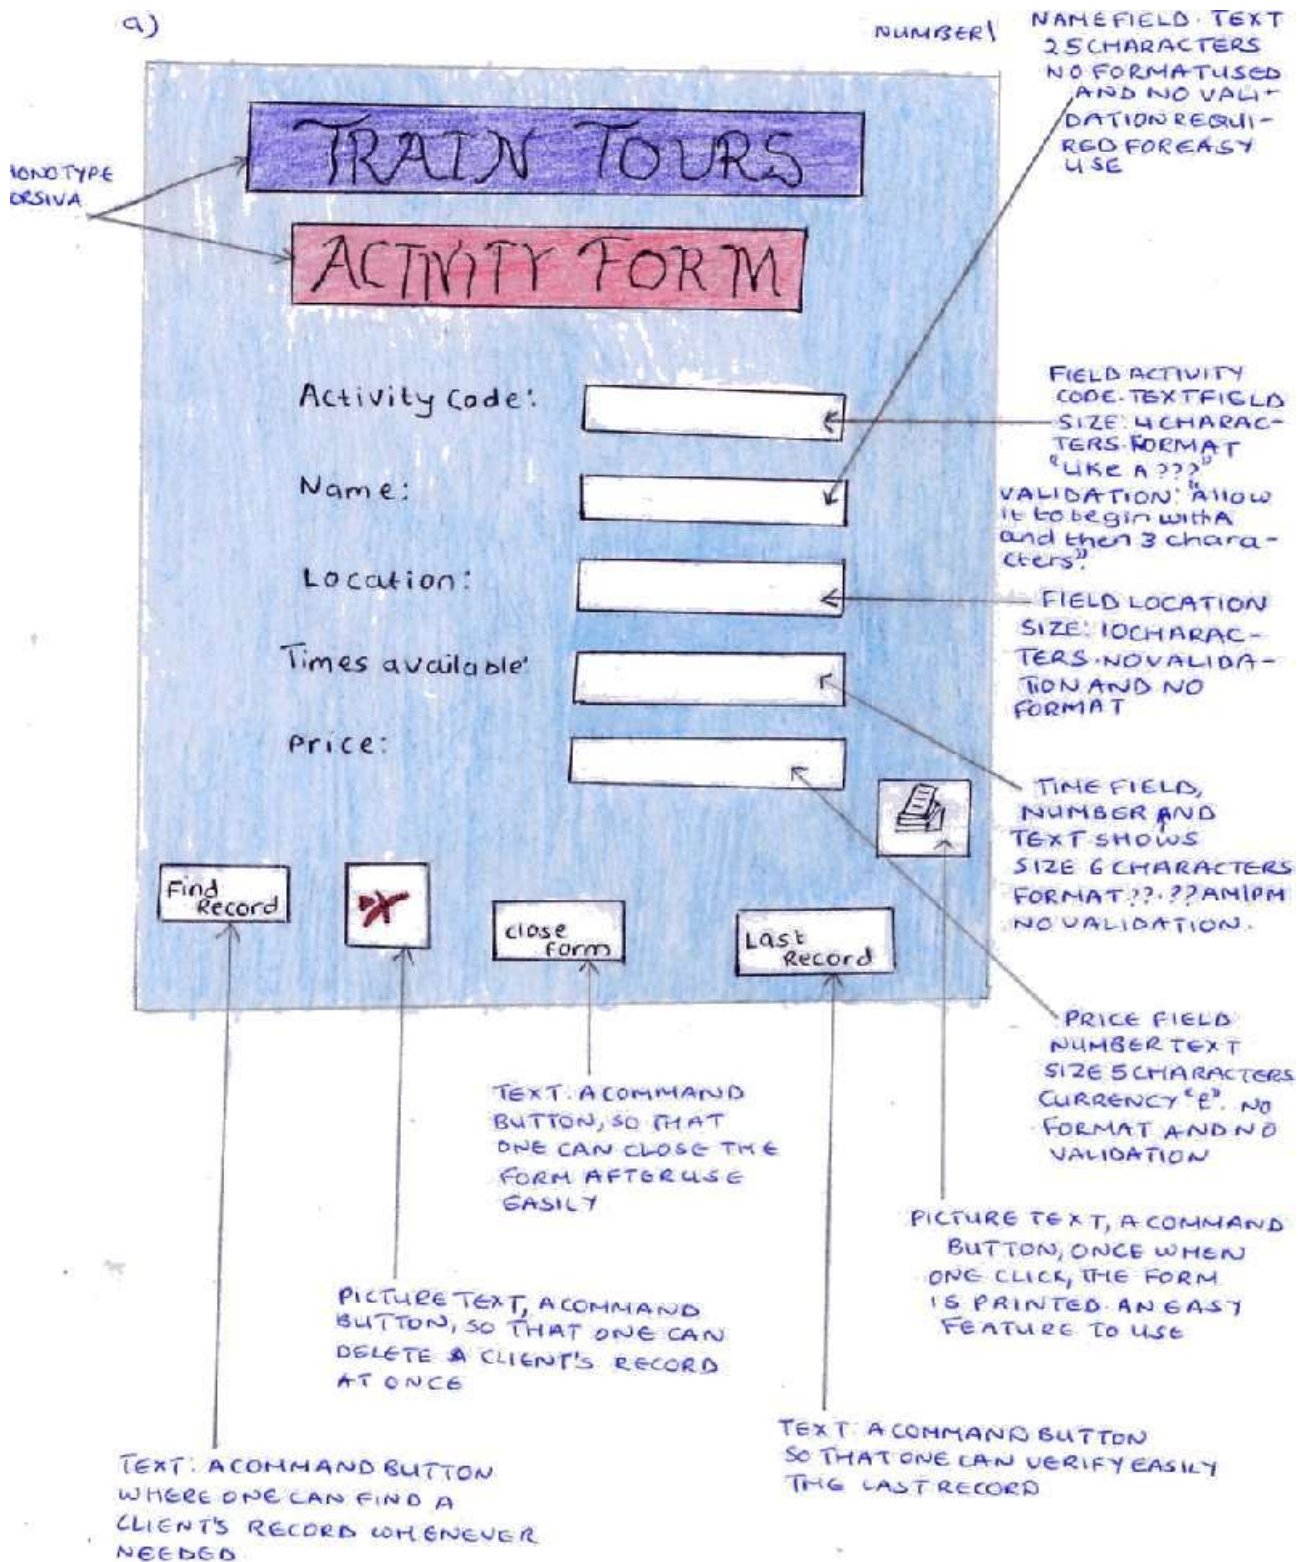 a)
NUMBER 1
NAME FIELD. TEXT
25 CHARACTERS
NO FORMAT USED
AND NO VALI-
DATION REQUI-
RED FOR EASY
USE
TRAIN TOURS
MONOTYPE
CORSIVA
ACTIVITY FORM
Activity Code:
FIELD ACTIVITY
CODE. TEXT FIELD
SIZE: 4 CHARAC-
TERS. FORMAT
"LIKE A ???"
VALIDATION: "Allow
it to begin with A
and then 3 chara-
cters"
Name:
Location:
FIELD LOCATION
SIZE: 10 CHARAC-
TERS. NO VALIDA-
TION AND NO
FORMAT
Times available:
Price:
TIME FIELD,
NUMBER AND
TEXT SHOWS
SIZE 6 CHARACTERS
FORMAT ??.?? AM/PM
NO VALIDATION.
Find
Record
Close
Form
Last
Record
PRICE FIELD
NUMBER TEXT
SIZE 5 CHARACTERS
CURRENCY "£". NO
FORMAT AND NO
VALIDATION
TEXT: A COMMAND
BUTTON, SO THAT
ONE CAN CLOSE THE
FORM AFTER USE
EASILY
PICTURE TEXT, A COMMAND
BUTTON, ONCE WHEN
ONE CLICK, THE FORM
IS PRINTED. AN EASY
FEATURE TO USE
PICTURE TEXT, A COMMAND
BUTTON, SO THAT ONE CAN
DELETE A CLIENT'S RECORD
AT ONCE
TEXT: A COMMAND BUTTON
SO THAT ONE CAN VERIFY EASILY
THE LAST RECORD
TEXT: A COMMAND BUTTON
WHERE ONE CAN FIND A
CLIENT'S RECORD WHENEVER
NEEDED